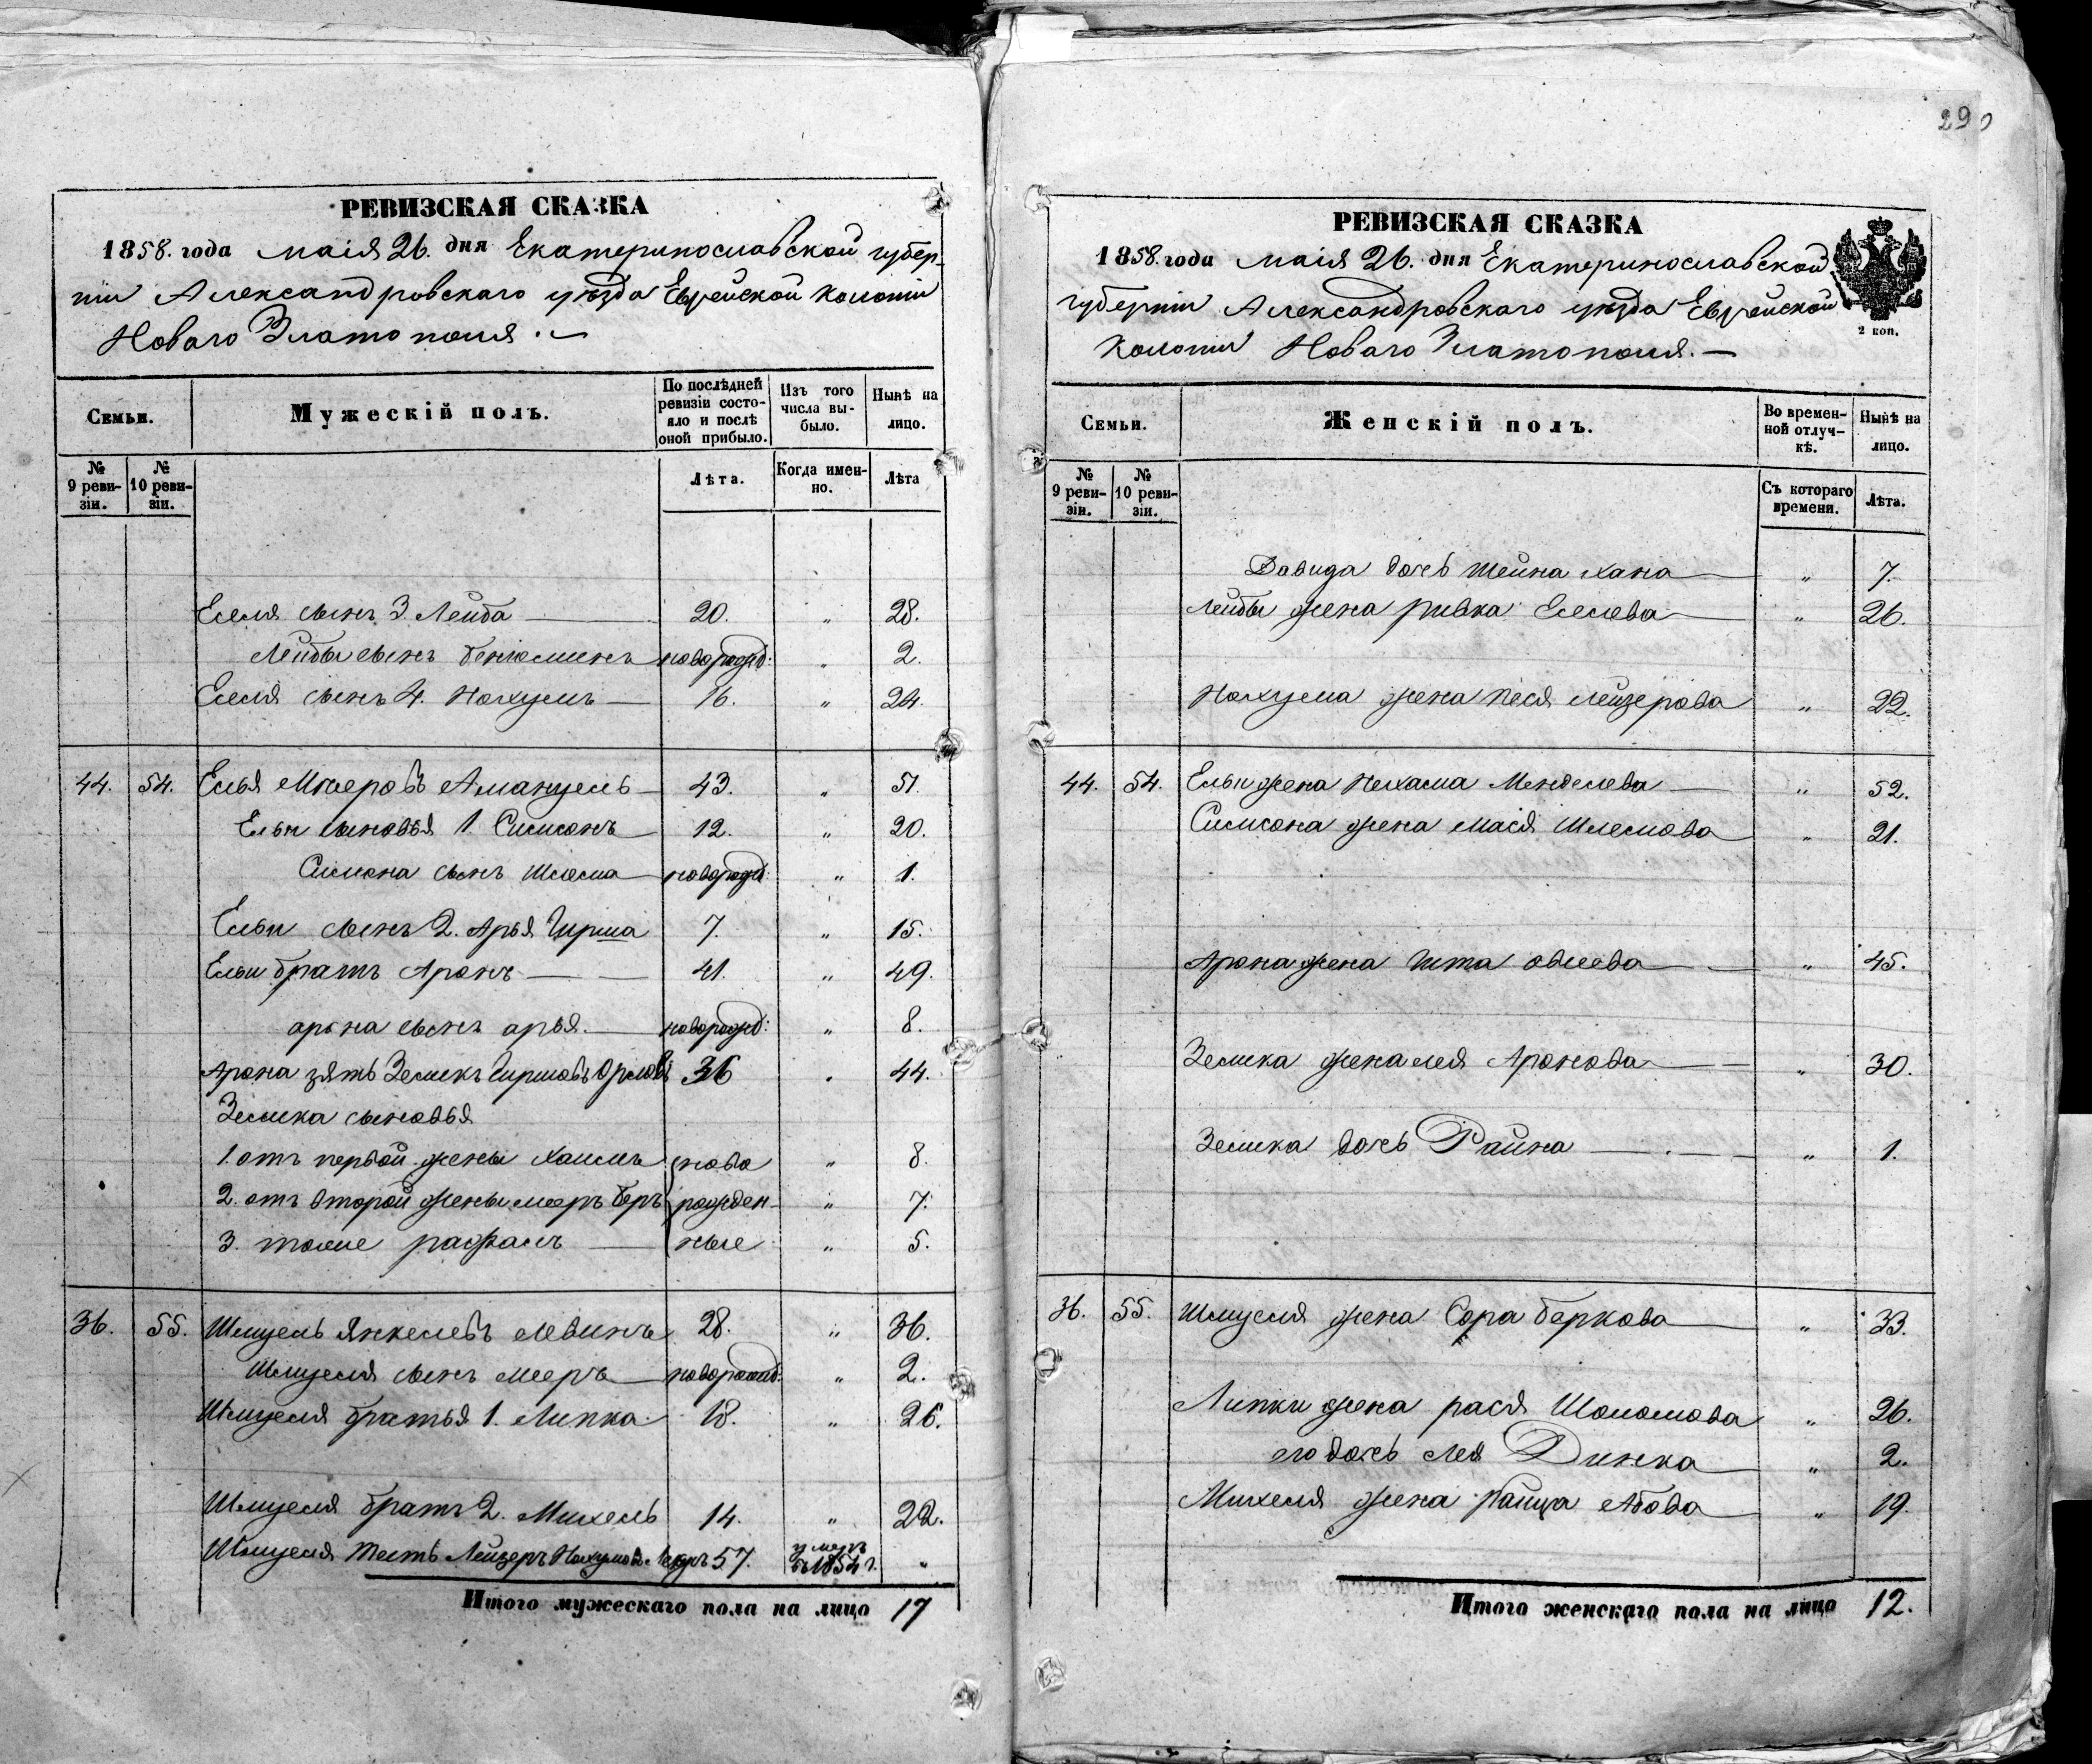 РЕВИЗСКАЯ СКАЗКА
1858. года маія 26. дня Екатеринославской губер-
ніи Александровскаго уѣзда Еврейской колоніи
Новаго Златополя.
Семьи.
Мужескій полъ.
По послѣдней ревизіи состояло и послѣ оной прибыло.
Изъ того числа выбыло.
Нынѣ на лицо.
№ 9 реви-зіи.
№ 10 реви-зіи.
Лѣта.
Когда имен-но.
Лѣта
Еселя сынъ 3. Лейба 20. „ 28.
Лейбы сынъ Беньюминъ новорожд: „ 2.
Еселя сынъ 4. Нохумъ 16. „ 24.
44. 54. Елья Мееровъ Амануель 43. „ 51.
Ельи сыновья 1. Симсонъ 12. „ 20.
Симсона сынъ Шлема новорожд: „ 1.
Ельи сынъ 2. Арья Гирша 7. „ 15.
Ельи братъ Аронъ 41. „ 49.
арона сынъ арья. новорожд: „ 8.
Арона зять Зеликъ Гиршовъ Орловъ 36 „ 44.
Зелика сыновья
1. отъ первой жены Хаимъ ново „ 8.
2. отъ второй жены мееръ беръ рожден- „ 7.
3. тоже рафаль ные „ 5.
36. 55. Шмуель Янкелевъ Левинъ 28. „ 36.
Шмуеля сынъ мееръ новорожд: „ 2.
Шмуеля братья 1. Липка 18. „ 26.
Шмуеля братъ 2. Михель 14. „ 22.
Шмуеля тесть Лейзеръ Нохумовъ 57. умеръ въ 1854 г. „
Итого мужескаго пола на лицо 17
290
РЕВИЗСКАЯ СКАЗКА
1858. года маія 26. дня Екатеринославской
губерніи Александровскаго уѣзда Еврейской
Колоніи Новаго Златополя.
2 коп.
Семьи.
Женскій полъ.
Во времен-ной отлуч-кѣ.
Нынѣ на лицо.
№ 9 реви-зіи.
№ 10 реви-зіи.
Съ котораго времени.
Лѣта.
Давида дочь Шейна Хана „ 7.
Лейбы жена Ривка Еселева „ 26.
Нохума жена Песя Лейзерова „ 22.
44. 54. Ельи жена Нехама Менделева „ 52.
Симсона жена Мася Шлемова „ 21.
Арона жена Гита Овсеева „ 45.
Зелика жена лея Аронова „ 30.
Зелика дочь Райна „ 1.
36. 55. Шмуеля жена Сора беркова „ 33.
Липки жена рася Шоломова „ 26.
его дочь Лея Динка „ 2.
Михеля жена Райца Абова „ 19.
Итого женскаго пола на лицо 12.